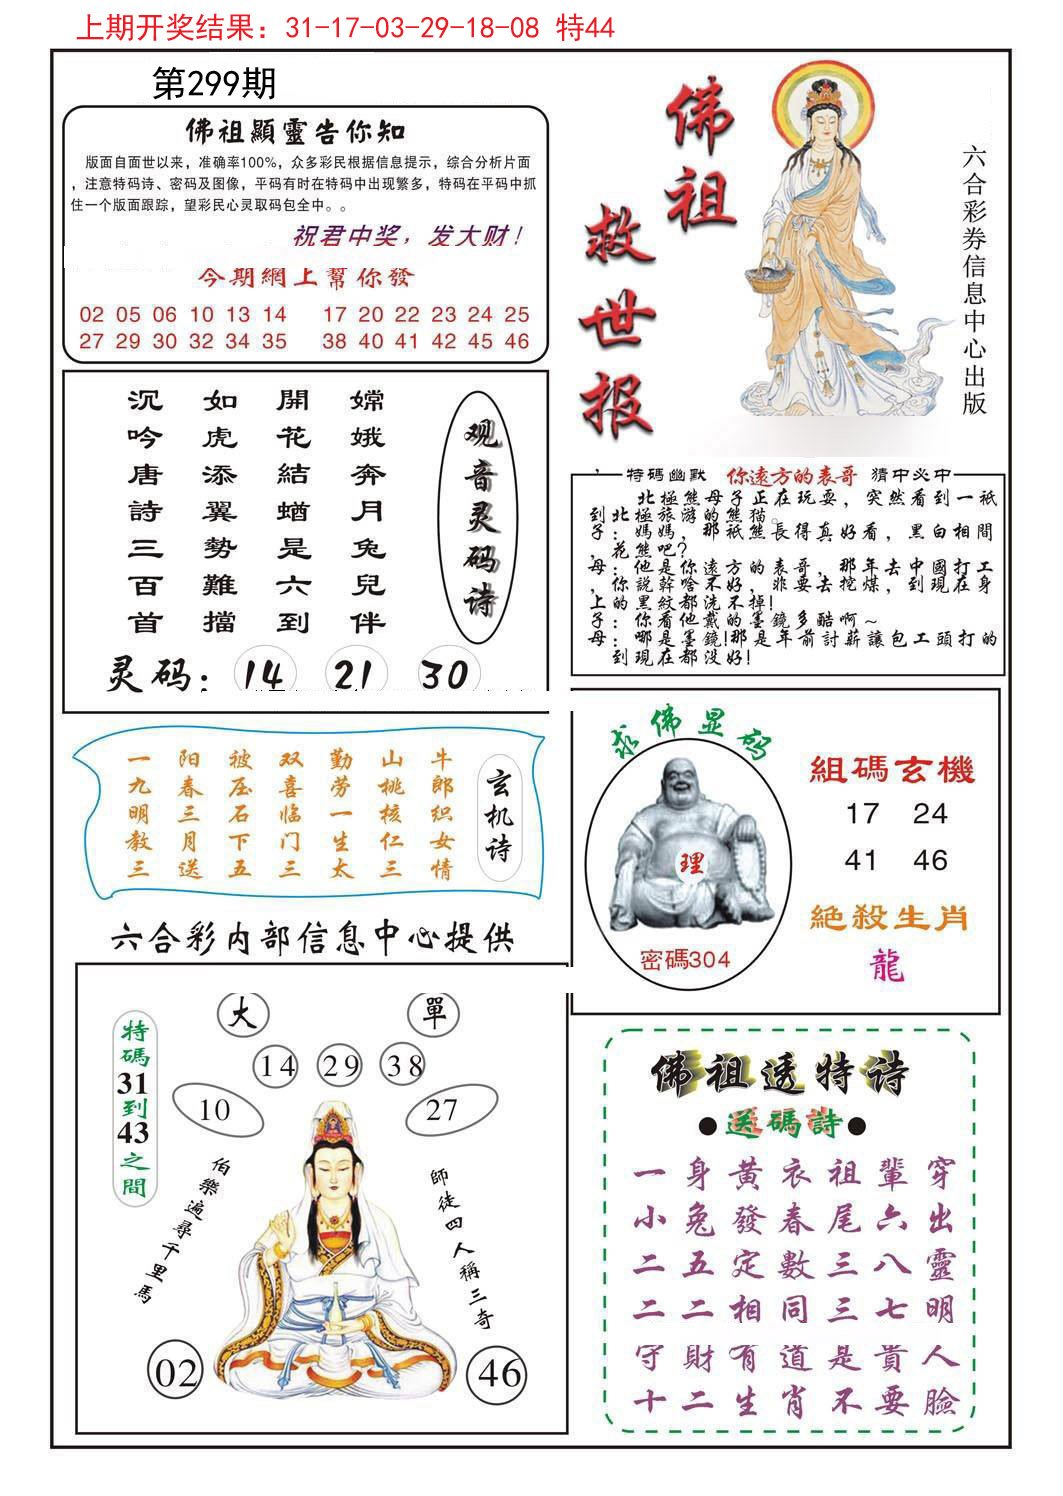 上期开奖结果：31-17-03-29-18-08 特44
第299期
佛祖顯靈告你知
版面自面世以来，准确率100%，众多彩民根据信息提示，综合分析片面
，注意特码诗、密码及图像，平码有时在特码中出现繁多，特码在平码中抓
住一个版面跟踪，望彩民心灵取码包全中。。
祝君中奖，发大财！
今期網上幫你發
02 05 06 10 13 14 17 20 22 23 24 25
27 29 30 32 34 35 38 40 41 42 45 46
佛祖
救世报
六合彩券信息中心出版
观音灵码诗
嫦娥奔月兔兒伴
開花結蝤是六到
如虎添翼勢難擋
沉吟唐詩三百首
灵码：14 21 30
特碼幽默 你遠方的表哥 猜中必中
北極熊母子正在玩耍，突然看到一祇
到北極旅游的熊猫。
子：媽媽，那祇熊長得真好看，黑白相間
，花熊吧?
母：他是你遠方的表哥，那年去中國打工
，你說幹啥不好，非要去挖煤，到現在身
上的黑紋都洗不掉!
子：你看他戴的墨鏡多酷啊～
母：哪是墨鏡!那是年前討薪讓包工頭打的
到現在都没好!
玄机诗
牛郎织女情
山桃核仁三
勤劳一生太
双喜临门三
被压石下五
阳春三月送
一九明教三
求佛显码
理
密碼304
組碼玄機
17 24
41 46
絕殺生肖
龍
六合彩内部信息中心提供
大 單
14 29 38
10 27
特碼31到43之間
伯樂遍尋千里馬
師徒四人稱三奇
02 46
佛祖透特诗
●送碼詩●
一身黃衣祖輩穿
小兔發春尾六出
二五定數三八靈
二二相同三七明
守財有道是貴人
十二生肖不要臉